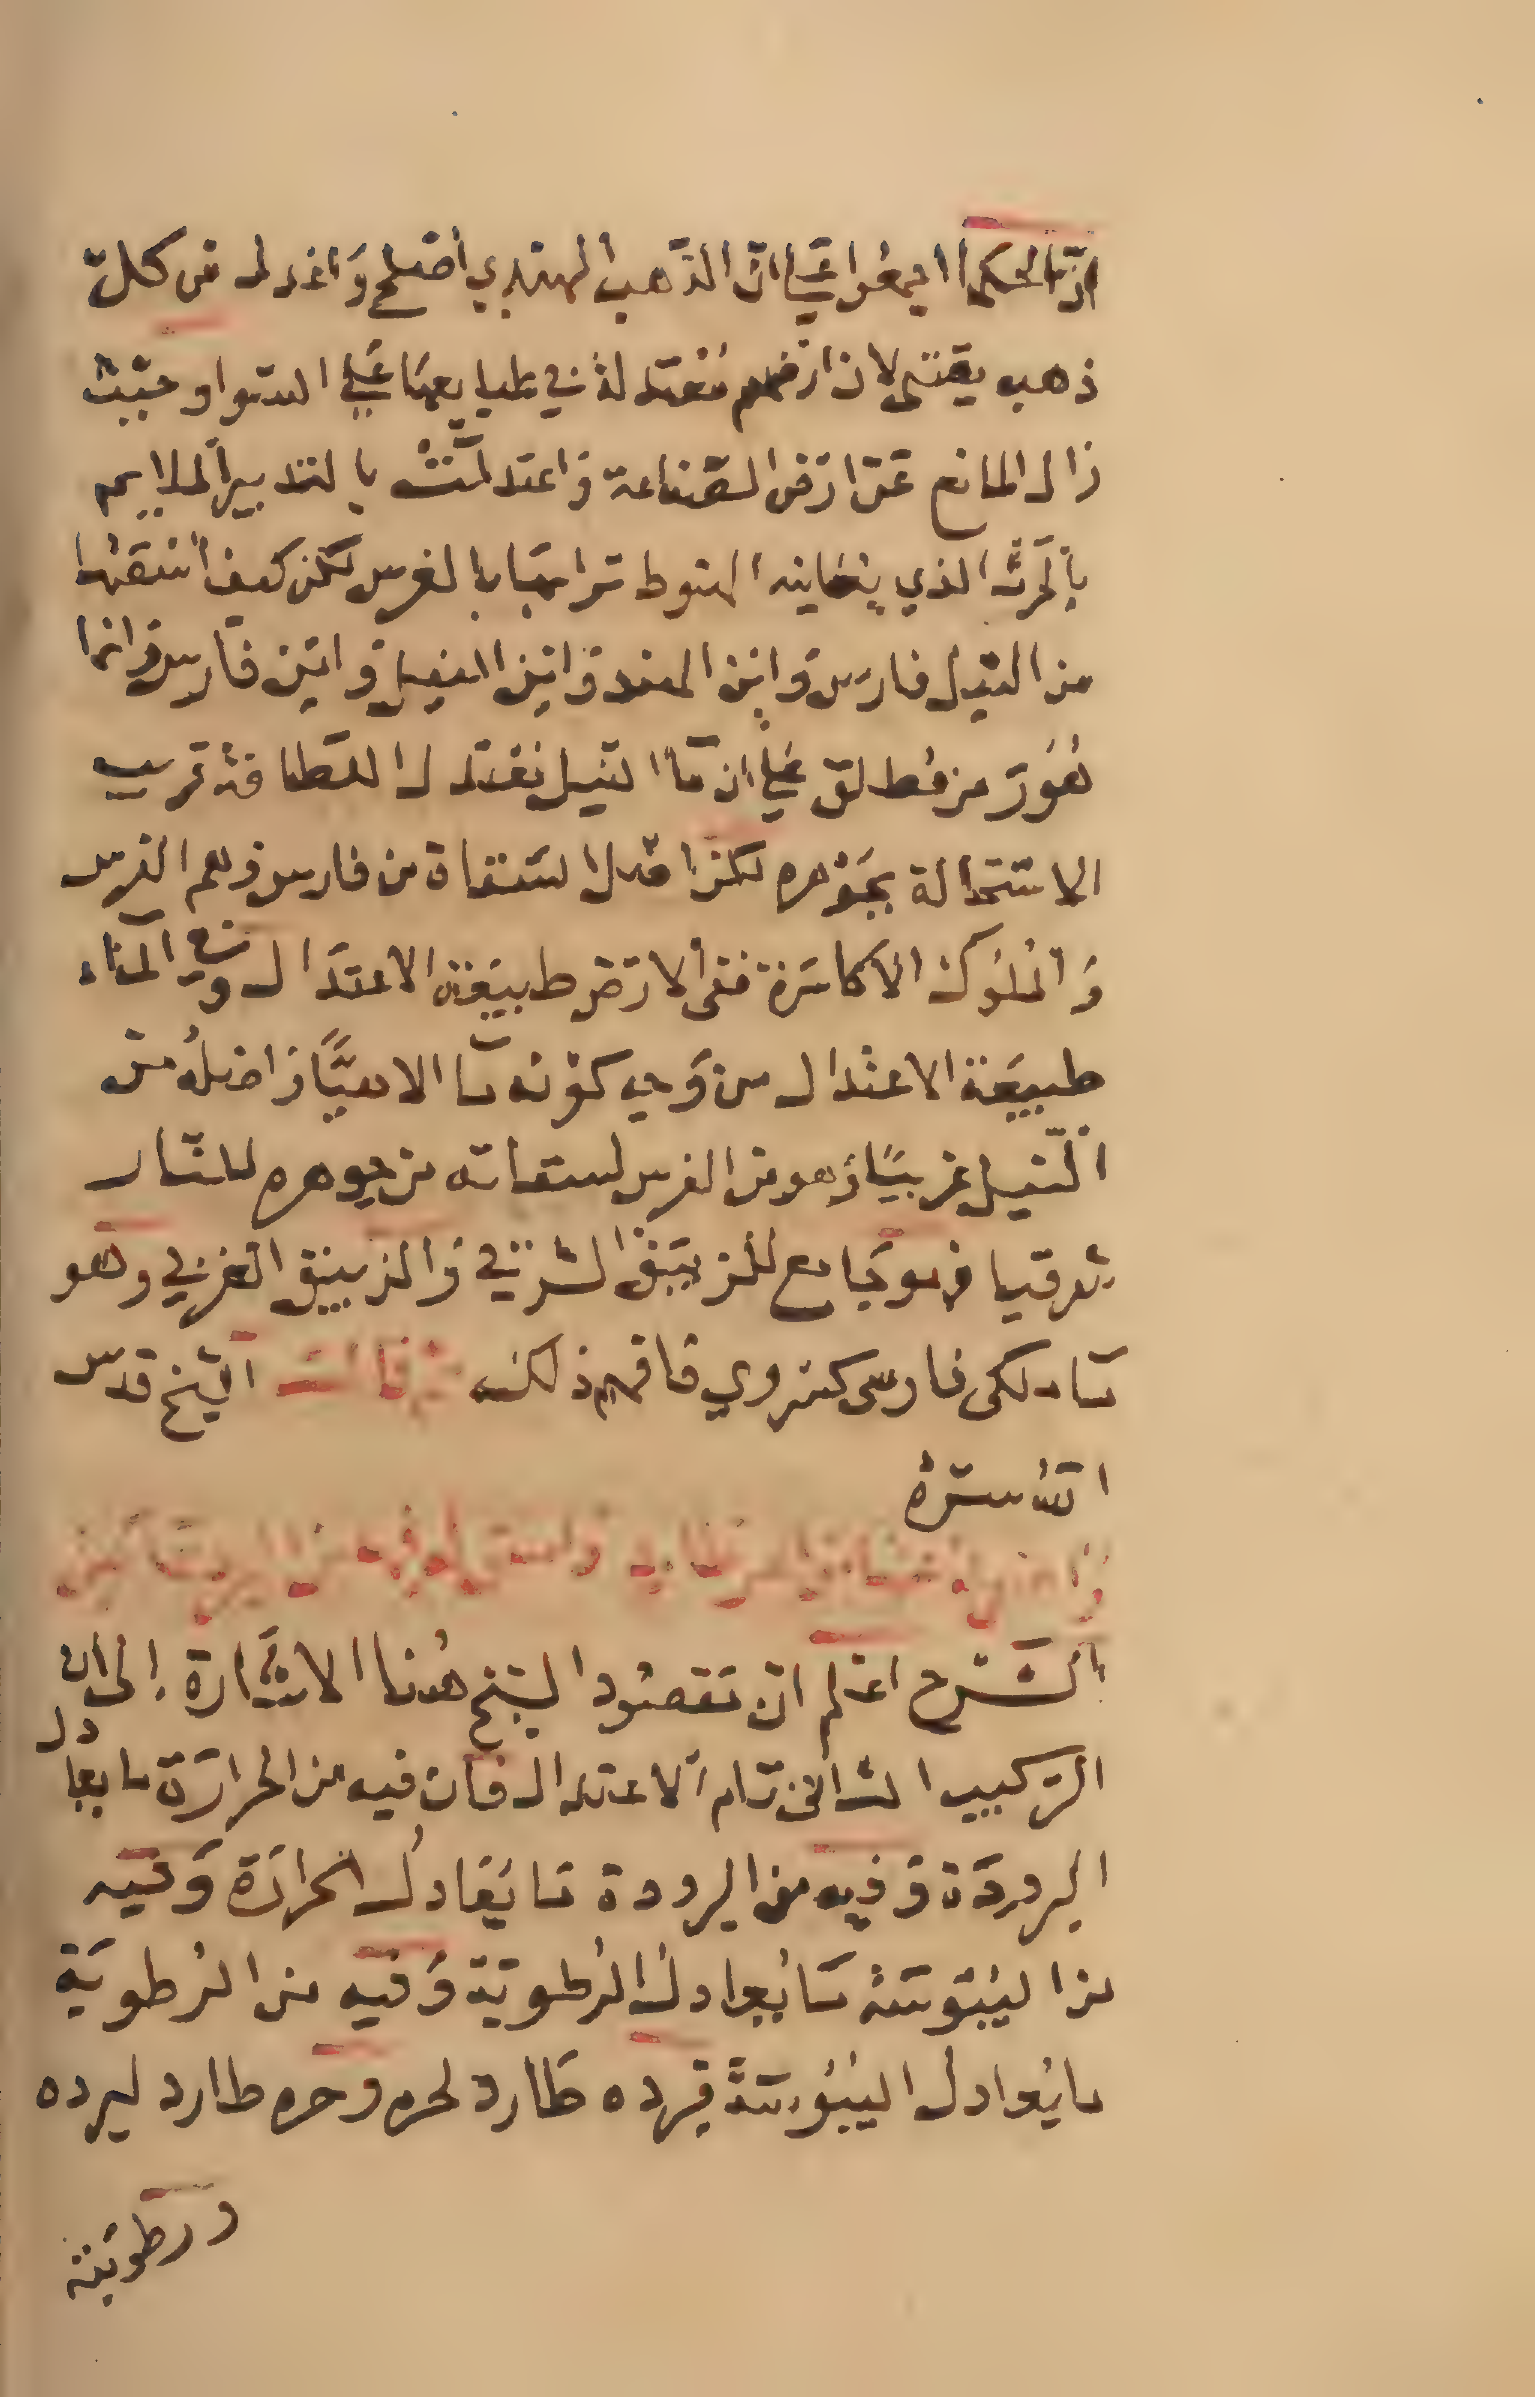 ان الحكما اجمعوا علي ان الذهب الهندي اصلح واعدل من كل
ذهب يقتني لان ارضهم معتدلة في طبايعها علي السوا وحيث
زال المانع عن ارض الصناعة واعتدلت بالتدبير الملايم
بالحرث الذي ينضايه المنوط ترابها بالغرس لكن كيف
من النيل فارس واين الهند واين النيل واين فارس وانما
هو رمز مطلق علي ان ما النيل معتدل اللطافة قريب
الاستحالة بجوهره لكن اصل استقاة من فارس وهم الفرس
والملوك الاكاسرة ففي الارض طبيعة الاعتدال وفي الماء
طبيعة الاعتدال من وجه كونه ما الاهيا واصله من
النيل غربيا وهو من الفرس لمستقاته من جوهره للنار
شرقيا فهو جامع للزيبق الشرقي والزيبق الغربي وهو
ما ملكي فارسي كسروي فافهم ذلك ثم قال الشيخ قدس
الله سره
الشرح اعلم ان مقصود الشيخ هنا الاشارة الي ان
التركيب الثاني تام الاعتدال فان فيه من الحرارة ما يعادل
البرودة وفيه من البرودة ما يعادل الحرارة وفيه
من اليبوسة ما يعادل الرطوبة وفيه من الرطوبة
ما يعادل اليبوسة فبرده طارد لحره وحره طارد لبرده
ورطوبته